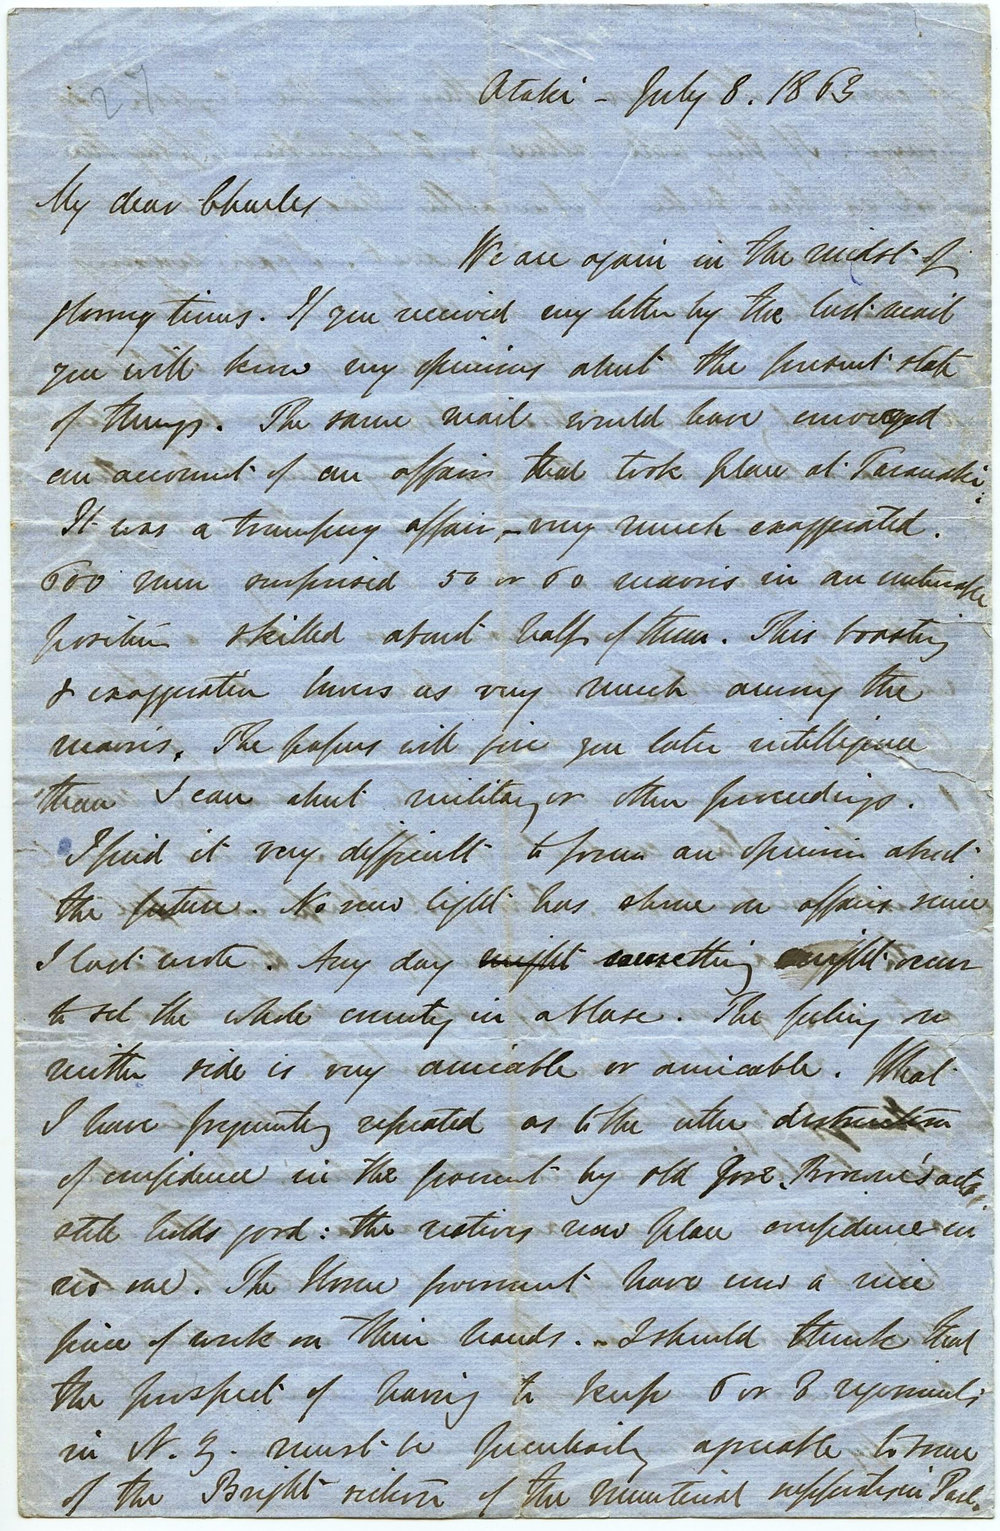 Otaki - July 8. 1863
My dear Charles
We are again in the midst of
glorious times. If you received my letter by the last mail
you will know my opinions about the present state
of things. The same mail would have conveyed
an account of an affair that took place at Taranaki.
It was a trumpery affair, - very much exaggerated.
600 men surprised 50 or 60 maoris in an untenable
position & killed about half of them. This boasting
& exaggeration lowers us very much among the
maoris. The papers will give you later intelligence
than I can about military or other proceedings.
I find it very difficult to form an opinion about
the future. No new light has shone on affairs since
I last wrote. Any day might something might occur
to set the whole country in a blaze. The feeling on
neither side is very amicable or amicable. What
I have frequently repeated as to the utter destruction
of confidence in the governmt by old Gov. Browne's acts,
still holds good: the natives now place confidence in
no one. The Home government have now a nice
piece of work on their hands. - I should think that
the prospect of having to keep 6 or 8 regiments
in N. Z. must be peculiarly agreeable to some
of the Bright section of the ministerial supporters in Parl.